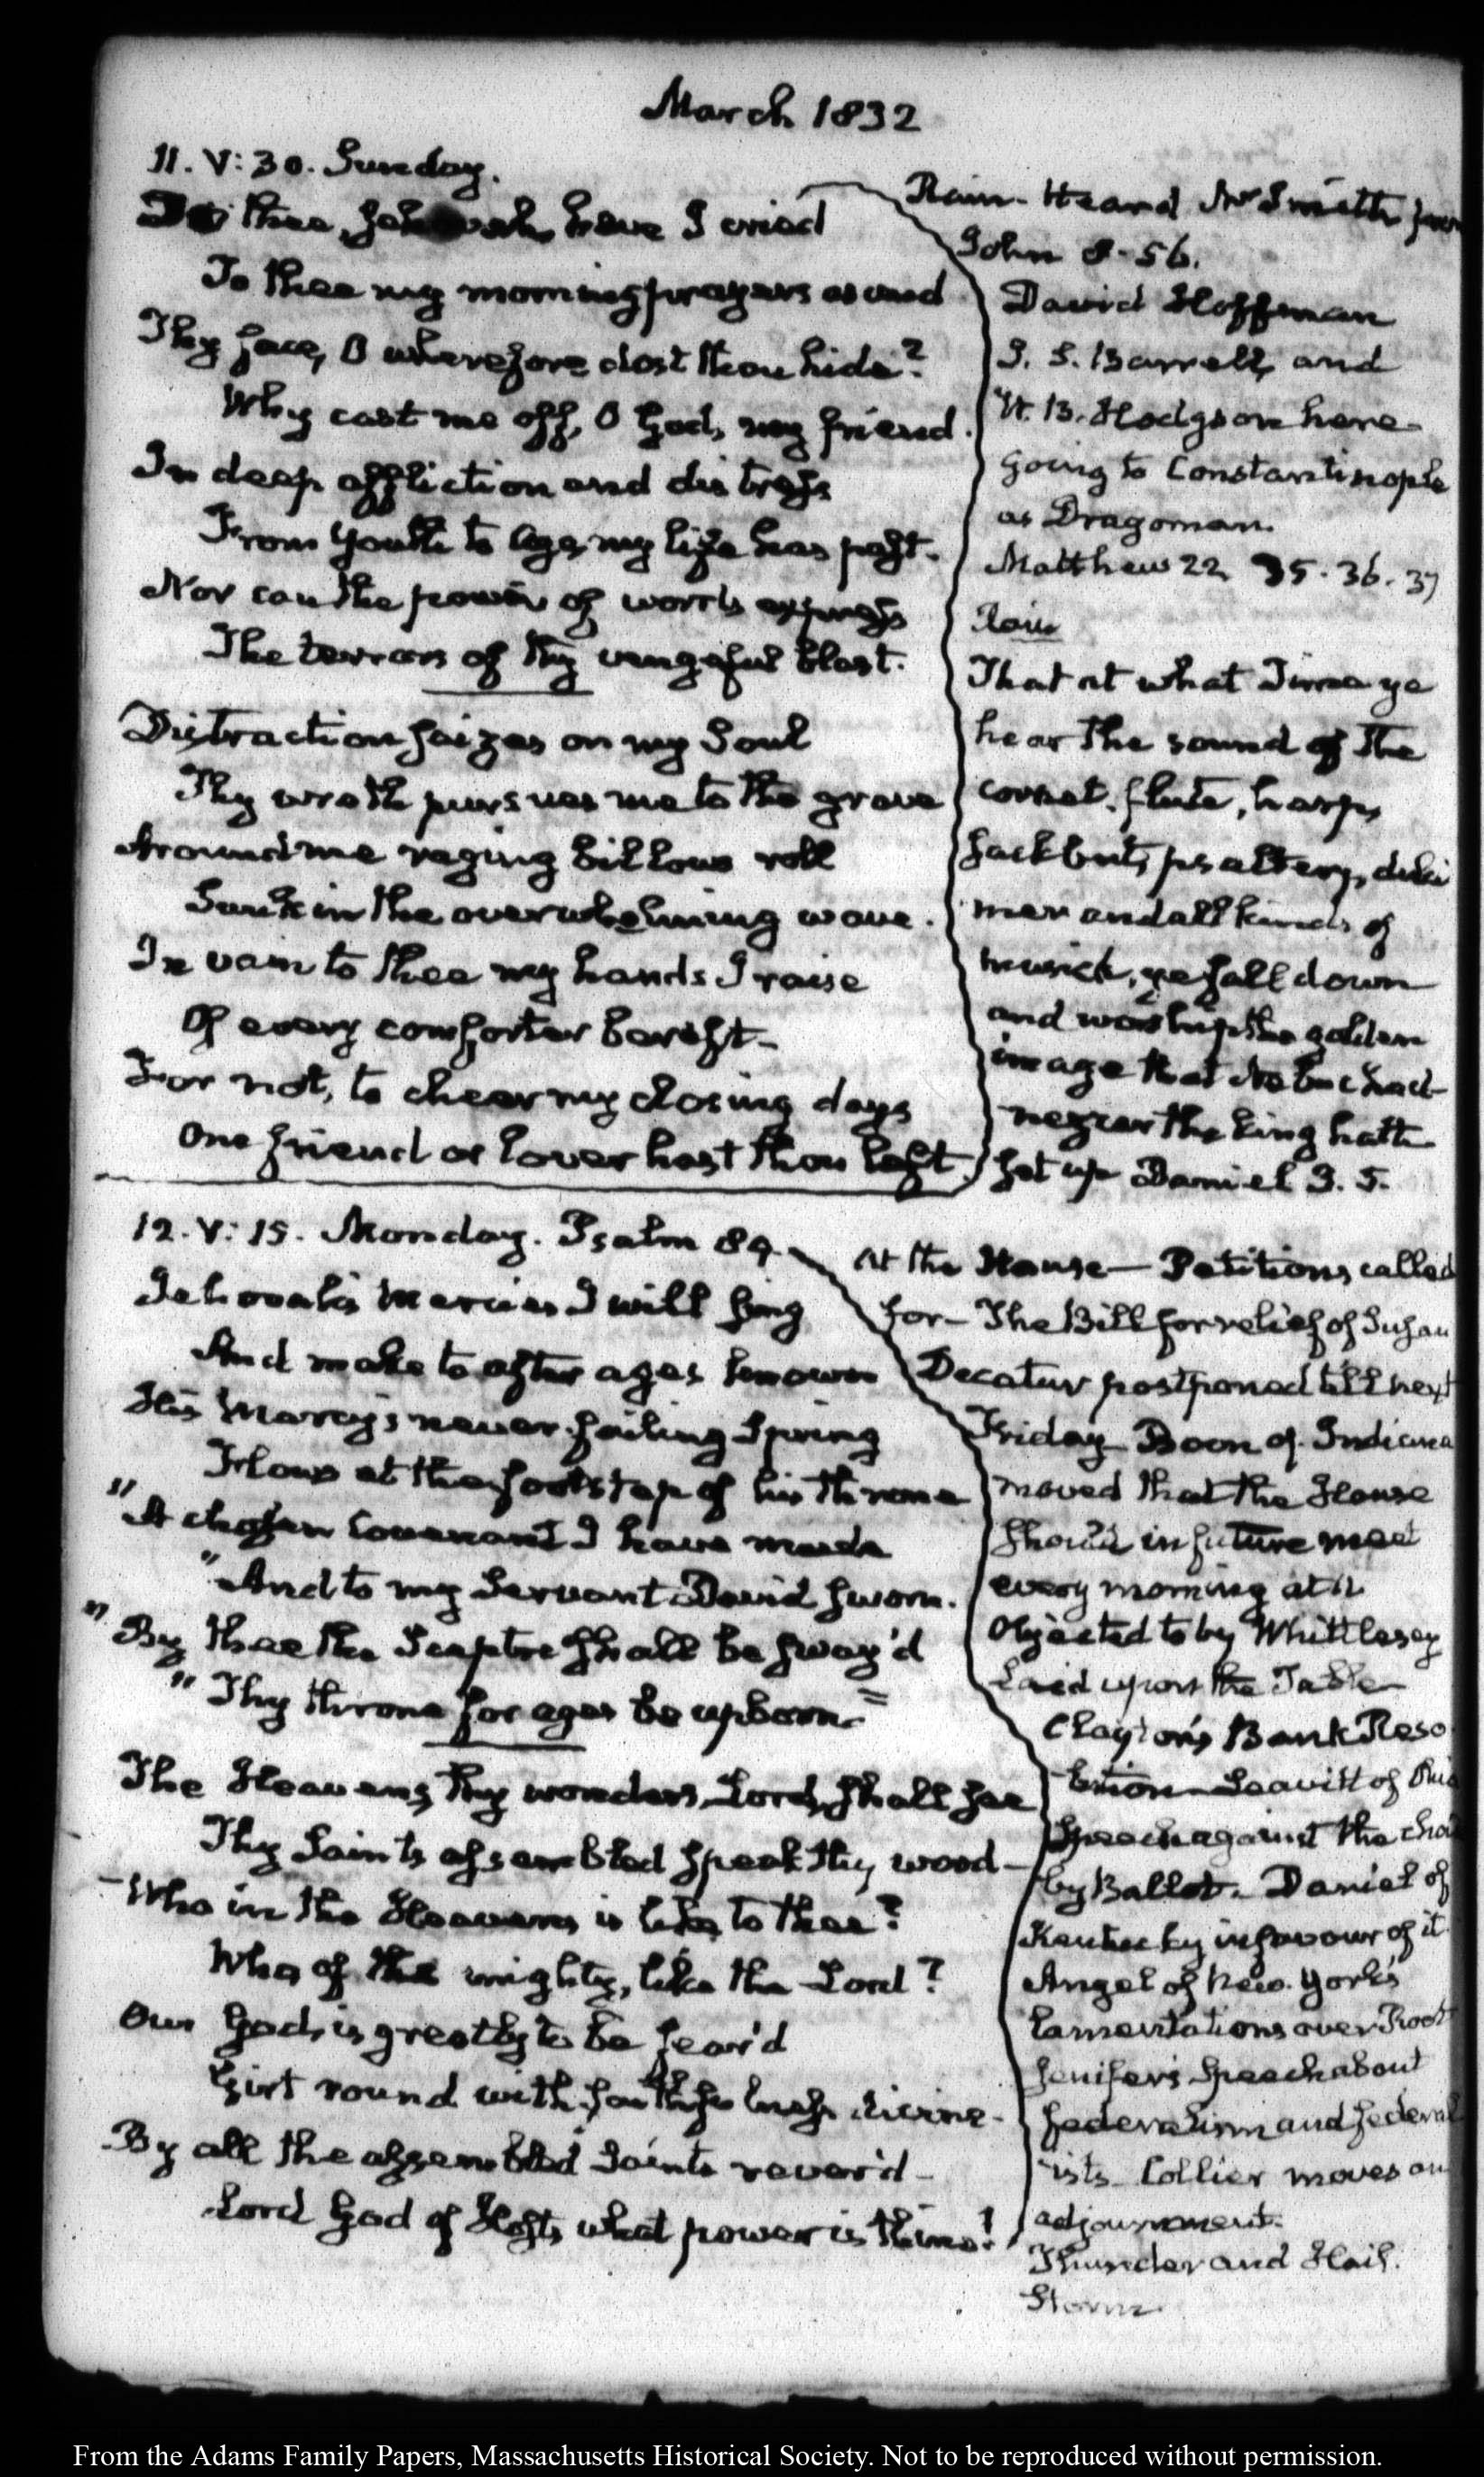 March 1832
11. V: 30. Sunday.
To thee, Jehovah, have I cried
To thee my morning prayers ascend
Thy face, O wherefore dost thou hide?
Why cast me off, O God, my friend.
In deep affliction and distress
From youth to age, my life has past.
Nor can the power of words express
The terrors of thy vengeful blast.
Distraction seizes on my Soul
Thy wrath pursues me to the grave
Around me raging billows roll
Sunk in the overwhelming wave.
In vain to thee my hands I raise
Of every comforter bereft-
For not, to cheer my closing days
One friend or lover hast thou left.
Rain- Heard Mr Smith from
John 8-56.
David Hoffman
S. Barrell, and
W. B. Hodgson here-
going to Constantinople
as Dragoman.
Matthew 22 35. 36. 37
Rain
That at what Time ye
hear the sound of the
cornet, flute, harp,
sackbut, psaltery, dulci
mer and all kinds of
musick, ye fall down
and worship the golden
image that Nebuchad-
nezzar the king hath
set up Daniel 3. 5.
12. V: 15. Monday. Psalm 89.
Jehovah's mercies I will sing
And make to after ages known
His Mercy's never-failing Spring
Flows at the footstep of his throne
"A chosen Covenant I have made
"And to my Servant David sworn.
"By thee the Sceptre shall be sway'd
"Thy throne for ages be upborn."
The Heavens, thy wonders, Lord, shall see
Thy Saints assembled speak thy word-
Who in the Heavens is like to thee?
Who of the mighty, like the Lord?
Our God, is greatly to be fear'd
Girt round with faithfulness divine-
By all the assembled Saints rever'd-
Lord God of Hosts, what power is thine!
At the House- Petitions called
for- The Bill for relief of Susan
Decatur postponed till next
Friday- Boon of Indiana
moved that the House
should in future meet
every morning at 11
Objected to by Whittlesey
Laid upon the Table-
Clayton's Bank Reso
lution- Leavitt of Ohio
Speech against the choice
by Ballot. Daniel of
Kentucky in favour of it
Angel of New-York's
lamentations over Root
Jenifer's Speech about
federalism and federal
ists- Collier moves an
adjournment.
Thunder and Hail.
Storm
From the Adams Family Papers, Massachusetts Historical Society. Not to be reproduced without permission.